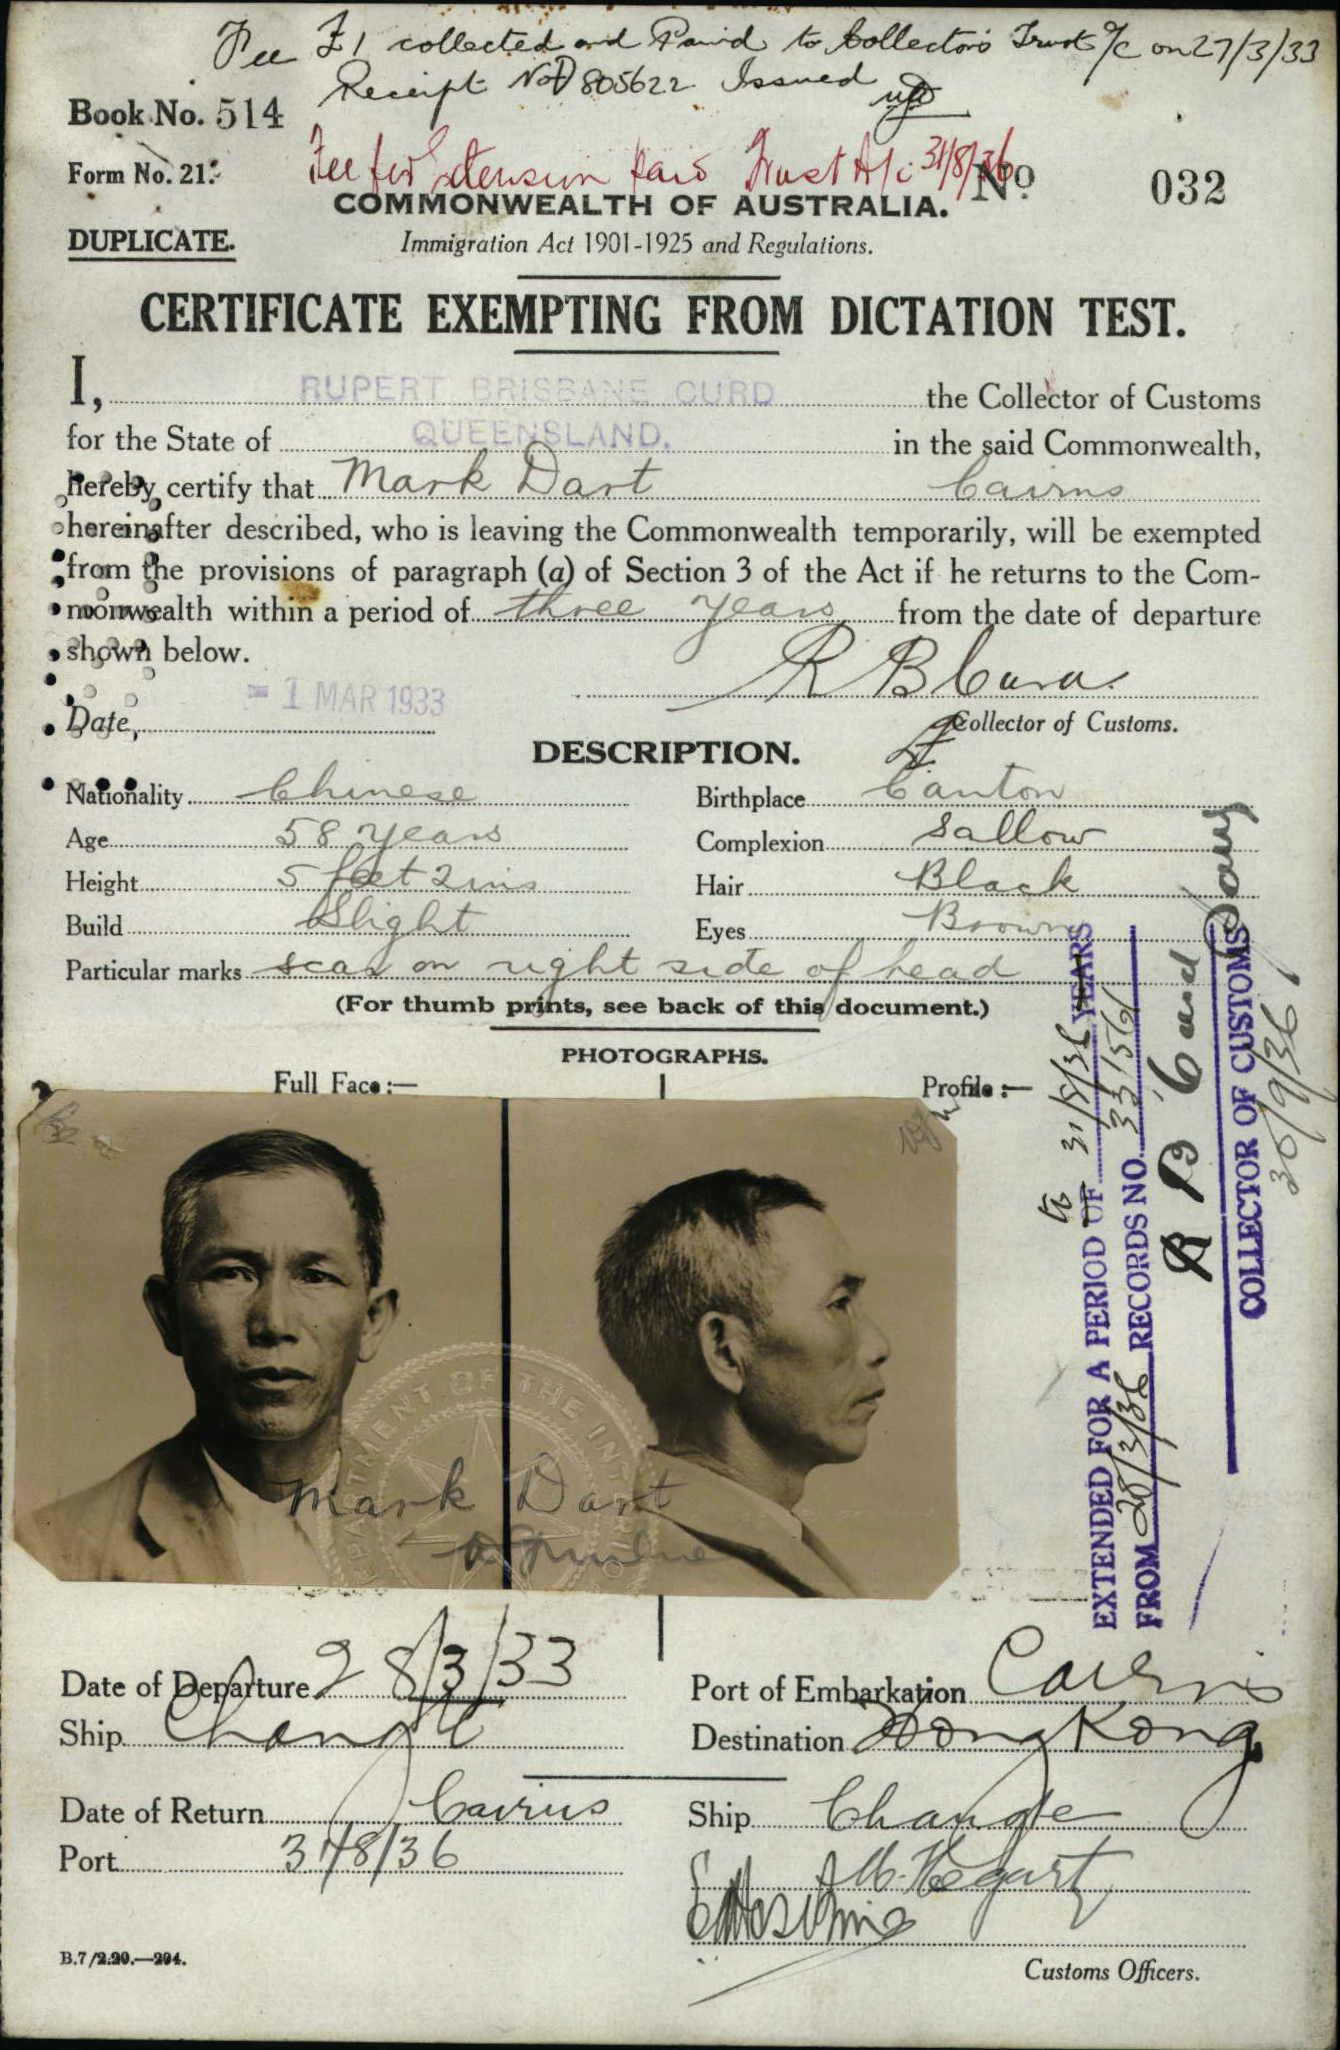 Fee £1 collected and Paid to Collector's Trust A/c on 27/3/33
Receipt No D805622 Issued
Book No. 514
Fee for Extension paid Trust A/c 31/8/36
Form No. 21.
No 032
COMMONWEALTH OF AUSTRALIA.
DUPLICATE.
Immigration Act 1901-1925 and Regulations.
CERTIFICATE EXEMPTING FROM DICTATION TEST.
I, RUPERT BRISBANE CURD the Collector of Customs
for the State of QUEENSLAND. in the said Commonwealth,
hereby certify that Mark Dart Cairns
hereinafter described, who is leaving the Commonwealth temporarily, will be exempted
from the provisions of paragraph (a) of Section 3 of the Act if he returns to the Com-
monwealth within a period of three years from the date of departure
shown below.
R B Curd
Date, - 1 MAR 1933
Collector of Customs.
DESCRIPTION.
Nationality Chinese Birthplace Canton
Age 58 years Complexion Sallow
Height 5 feet 2 ins Hair Black
Build Slight Eyes Brown
Particular marks scar on right side of head
(For thumb prints, see back of this document.)
PHOTOGRAPHS.
Full Face:— Profile:—
DEPARTMENT OF THE INTERIOR
Mark Dart
EXTENDED FOR A PERIOD OF to 31/8/36 YEARS
FROM 28/3/36 RECORDS NO. 33/1561
R B Curd
COLLECTOR OF CUSTOMS
30/9/36
Date of Departure 28/3/33 Port of Embarkation Cairns
Ship Changte Destination Hong Kong
Date of Return Cairns Ship Changte
Port 31/8/36
Customs Officers.
B.7/2.29.—294.